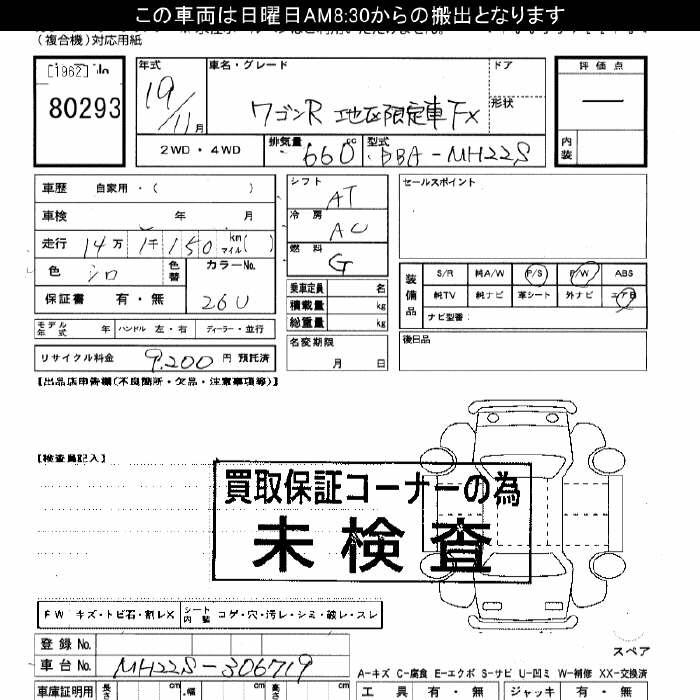 この車両は日曜日AM8:30からの搬出となります
(複合機)対応用紙
[1962]
80293
年式
19/11月
車名・グレード
ワゴンR 地区限定車 FX
ドア
形状
評価点
―
内装
2WD・4WD
排気量
660cc
型式
DBA-MH22S
車歴 自家用・( )
車検 年 月
走行 14万1千150km マイル( )
色 シロ
色替
カラーNo.
26U
保証書 有・無
シフト
AT
冷房
AC
燃料
G
乗車定員 名
積載量 kg
総重量 kg
セールスポイント
装備品
S/R 純A/W P/S P/W ABS
純TV 純ナビ 革シート 外ナビ エアB
ナビ型番:
モデル年式 年 ハンドル 左・右 ディーラー・並行
リサイクル料金 9,200円 預託済
名変期限
月 日
後日品
【出品店申告欄(不良箇所・欠品・注意事項等)】
【検査員記入】
買取保証コーナーの為
未検査
FW キズ・トビ石・割レX
シート内装 コゲ・穴・汚レ・シミ・破レ・スレ
スペア
登録No.
車台No. MH22S-306719
A-キズ C-腐食 E-エクボ S-サビ U-凹ミ W-補修 XX-交換済
車庫証明用 長さ cm 幅 cm 高さ cm
工具 有・無 ジャッキ 有・無